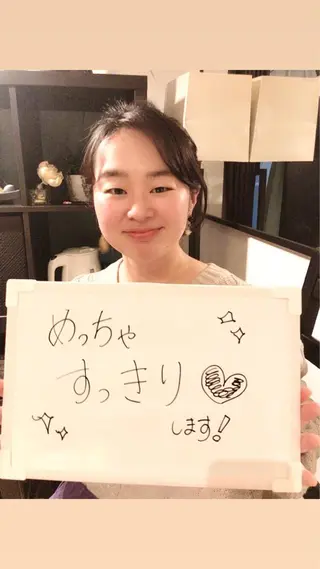 めっちゃ
すっきり
します!